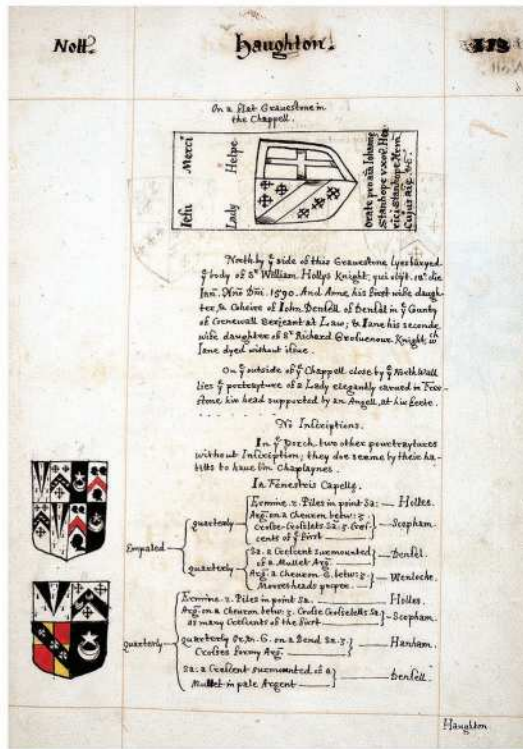 Nott.
Haughton.
On a flat Grauestone in
the Chappell.
Iesu Merci
Lady Helpe
Orate pro aia Iohanne
Stanhope vxoris Hen
rici Stanhope
Cujus aie &c:
North by ye side of this Grauestone lyes buryed
ye body of Sr William Hollys Knight, qui obijt. 18o die
Ian. Ano Dni. 1590. And Anne his first wife daugh-
ter, & Coheire of Iohn Densell of Densal in ye County
of Cornewall Serjeant at Law; & Iane his seconde
wife daughter of Sr Richard Grosuenour Knight, wch
Iane dyed without issue.
On ye outside of ye Chappell close by ye North Wall
lies ye portrayture of a Lady elegantly carued in Free
stone her head supported by an Angell, at his feete.
No Inscriptions.
In ye Porch two other pourtraytures
without Inscription; they doe seeme by these ha-
bitts to haue bin Chaplaynes.
In Fenestris Capelle.
Empaled
quarterly
Ermine. 2. Piles in point Sa:
Holles.
Arg: on a Cheuron betw: 3.
Crosse-Crosselets Sa: 3. Cres-
cents of ye first
Scopham.
quarterly
Sa: a Crescent surmounted
of a Mullet Arg.
Densel.
Arg: a Cheuron G. betw: 3.
Mooresheads proper.
Wenloche.
Quarterly
Ermine. 2. Piles in point Sa.
Holles.
Arg: on a Cheuron betw: 3. Crosse Crosseletts Sa:
as many Crescents of the first
Scopham.
quarterly Or, & G. on a Bend Sa. 3.
Crosses formy Arg.
Hanham.
Sa: a Crescent surmounted of a
Mullet in pale Argent
Densell.
Haughton